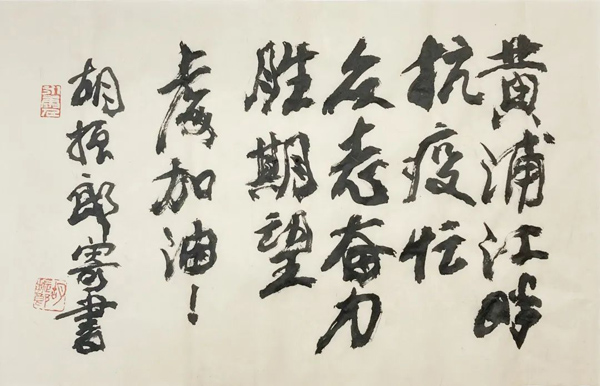 黄浦江畔
抗疫忙
众志奋力
胜期望
上海加油！
胡振郎寄書